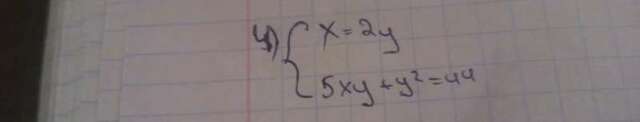 4) { x = 2y
5xy + y² = 44